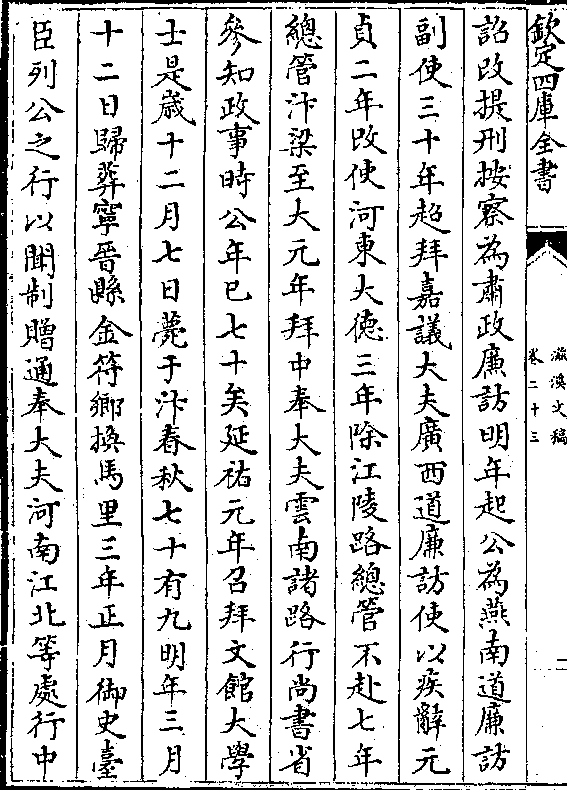 欽定四庫全書
滋溪文稿
卷二十三
二
詔改提刑按察為肅政廉訪明年起公為燕南道廉訪
副使三十年超拜嘉議大夫廣西道廉訪使以疾辭元
貞二年改使河東大德三年除江陵路總管不赴七年
總管汴梁至大元年拜中奉大夫雲南諸路行尚書省
參知政事時公年已七十矣延祐元年召拜文館大學
士是歲十二月七日薨于汴春秋七十有九明年三月
十二日歸葬寧晉縣金符鄉換馬里三年正月御史臺
臣列公之行以聞制贈通奉大夫河南江北等處行中